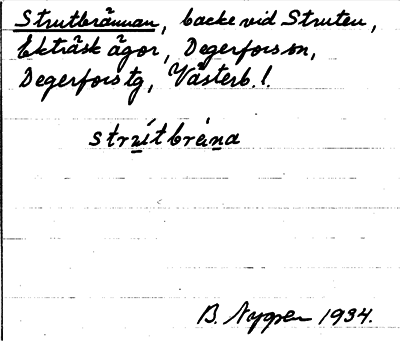 Strutbrännan, backe vid Struten,
Ekträsk ägor, Degerfors sn,
Degerfors tg, Västerb. l.
B. Nygren 1934.